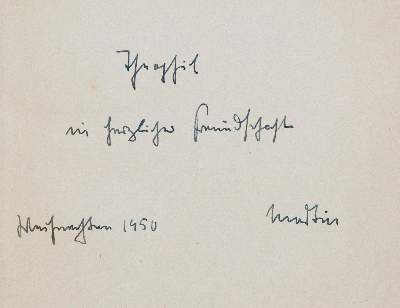 Theophil
in herzlicher Freundschaft
Weihnachten 1950 Martin